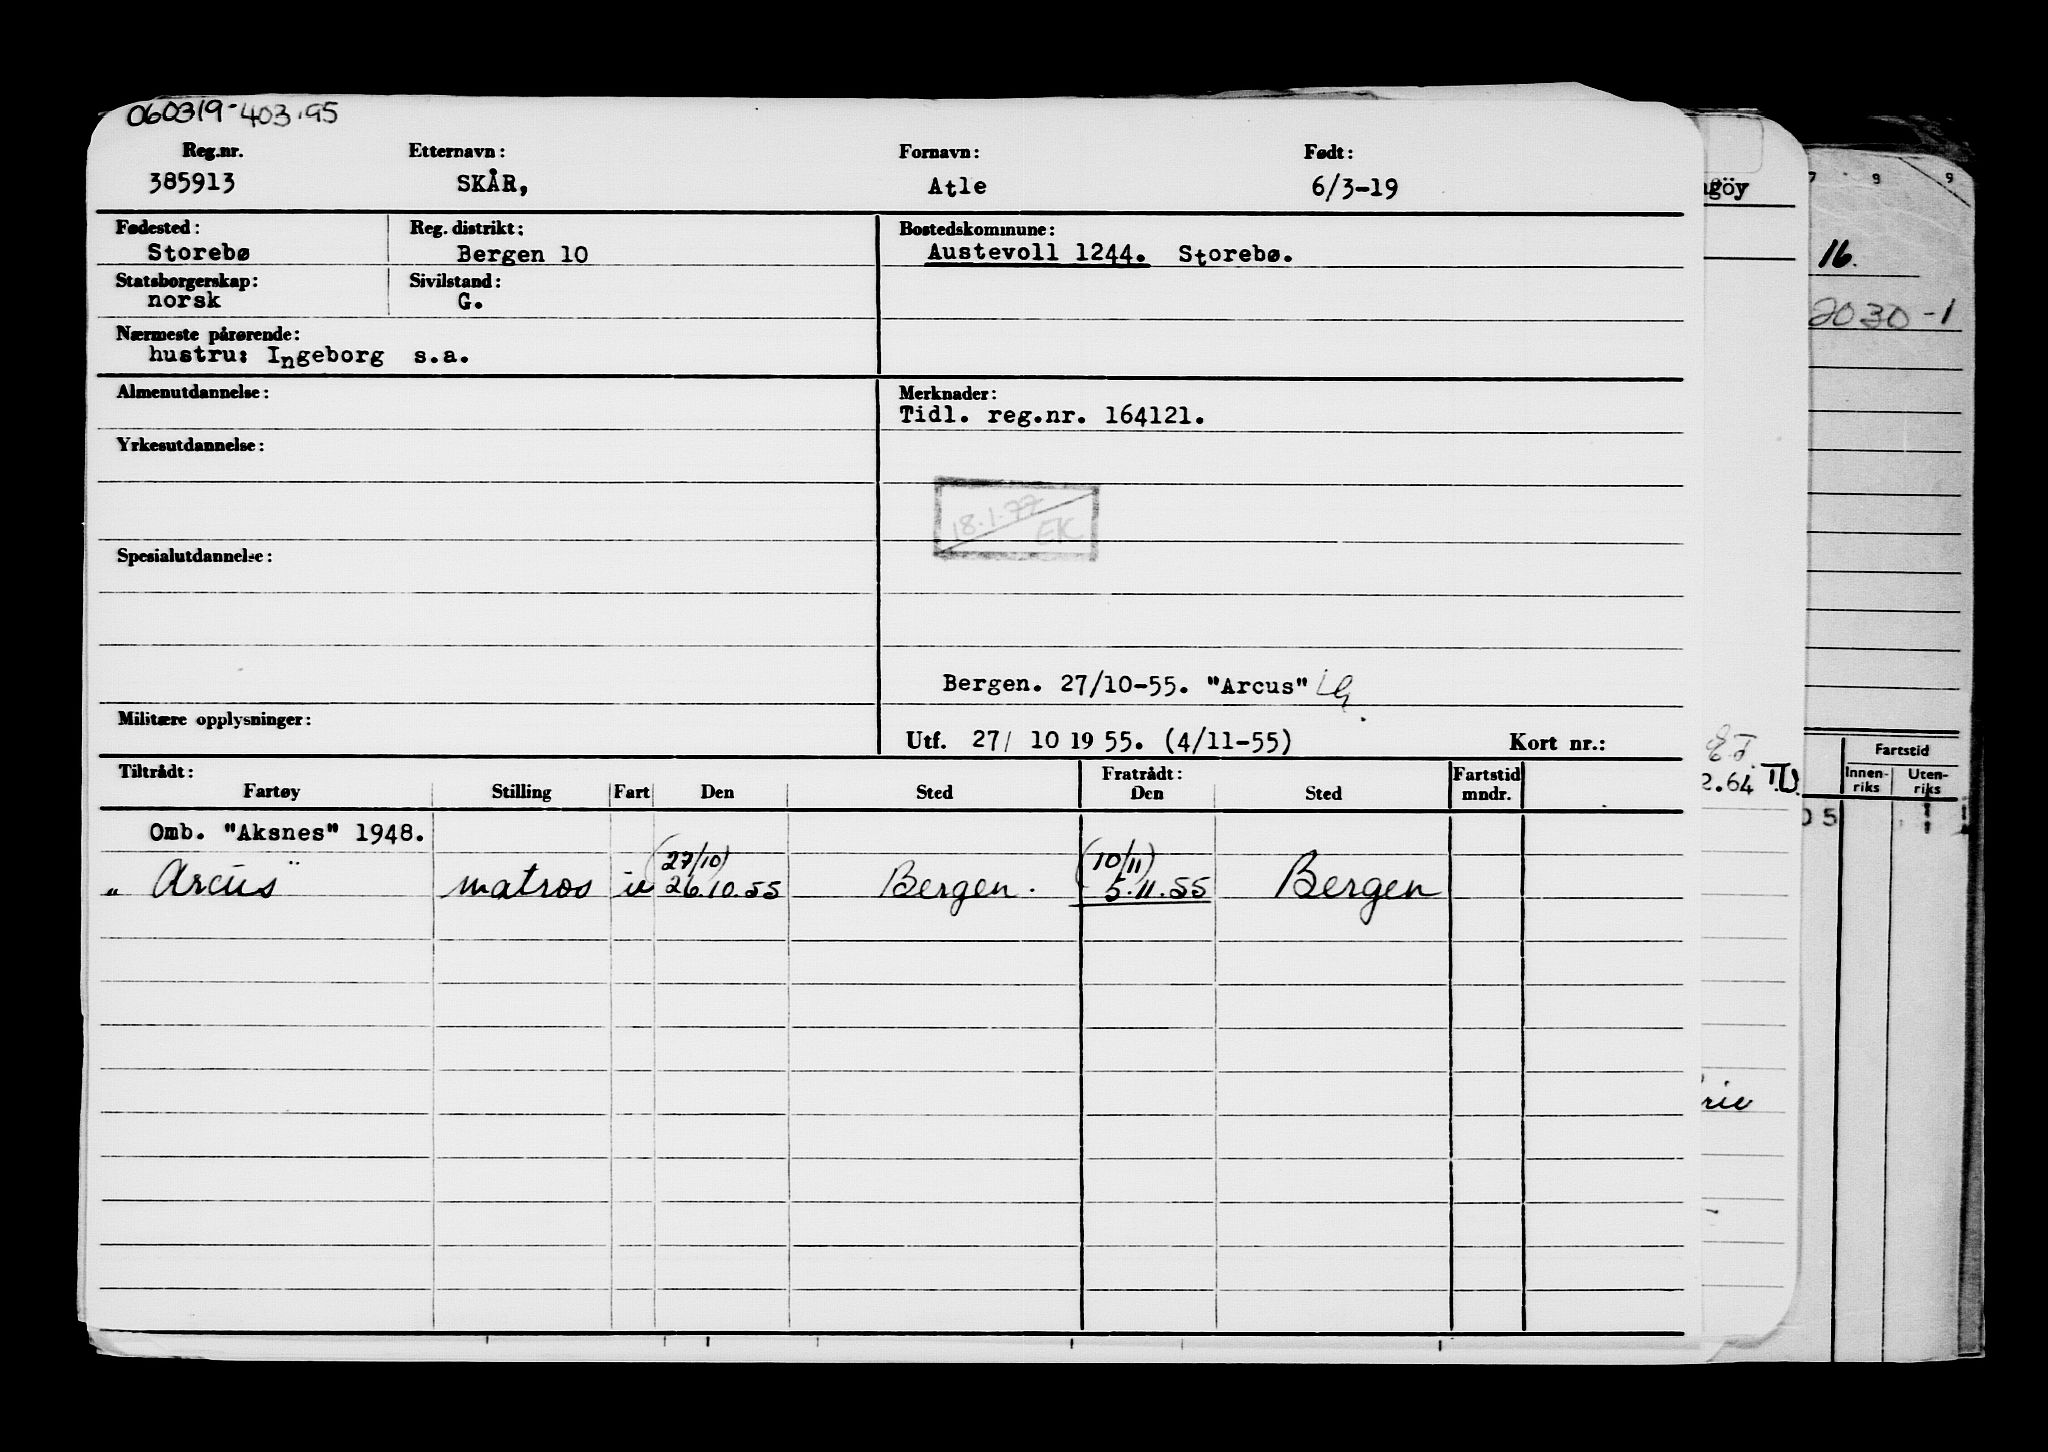 060319-403.95
Reg.nr. Etternavn: Fornavn: Født:
385913 SKÅR, Atle 6/3-19
Fødested: Reg. distrikt: Bostedskommune:
Storebø Bergen 10 Austevoll 1244. Storebø.
Statsborgerskap: Sivilstand:
norsk G.
Nærmeste pårørende:
hustru: Ingeborg s.a.
Almenutdannelse: Merknader:
Tidl. reg.nr. 164121.
Yrkesutdannelse:
18.1.77
EK
Spesialutdannelse:
Bergen. 27/10-55. "Arcus"
Militære opplysninger:
Utf. 27/ 10 19 55. (4/11-55) Kort nr.:
Tiltrådt: Fratrådt: Fartstid
Fartøy Stilling Fart Den Sted Den Sted mndr.
Omb. "Aksnes" 1948.
(27/10) (10/11)
" Arcus" matros iu 26.10.55 Bergen. 5.11.55 Bergen
göy
2.64 T.D.
rie
7 8 9
16.
2030-1
Fartstid
Innen-riks Uten-riks
05